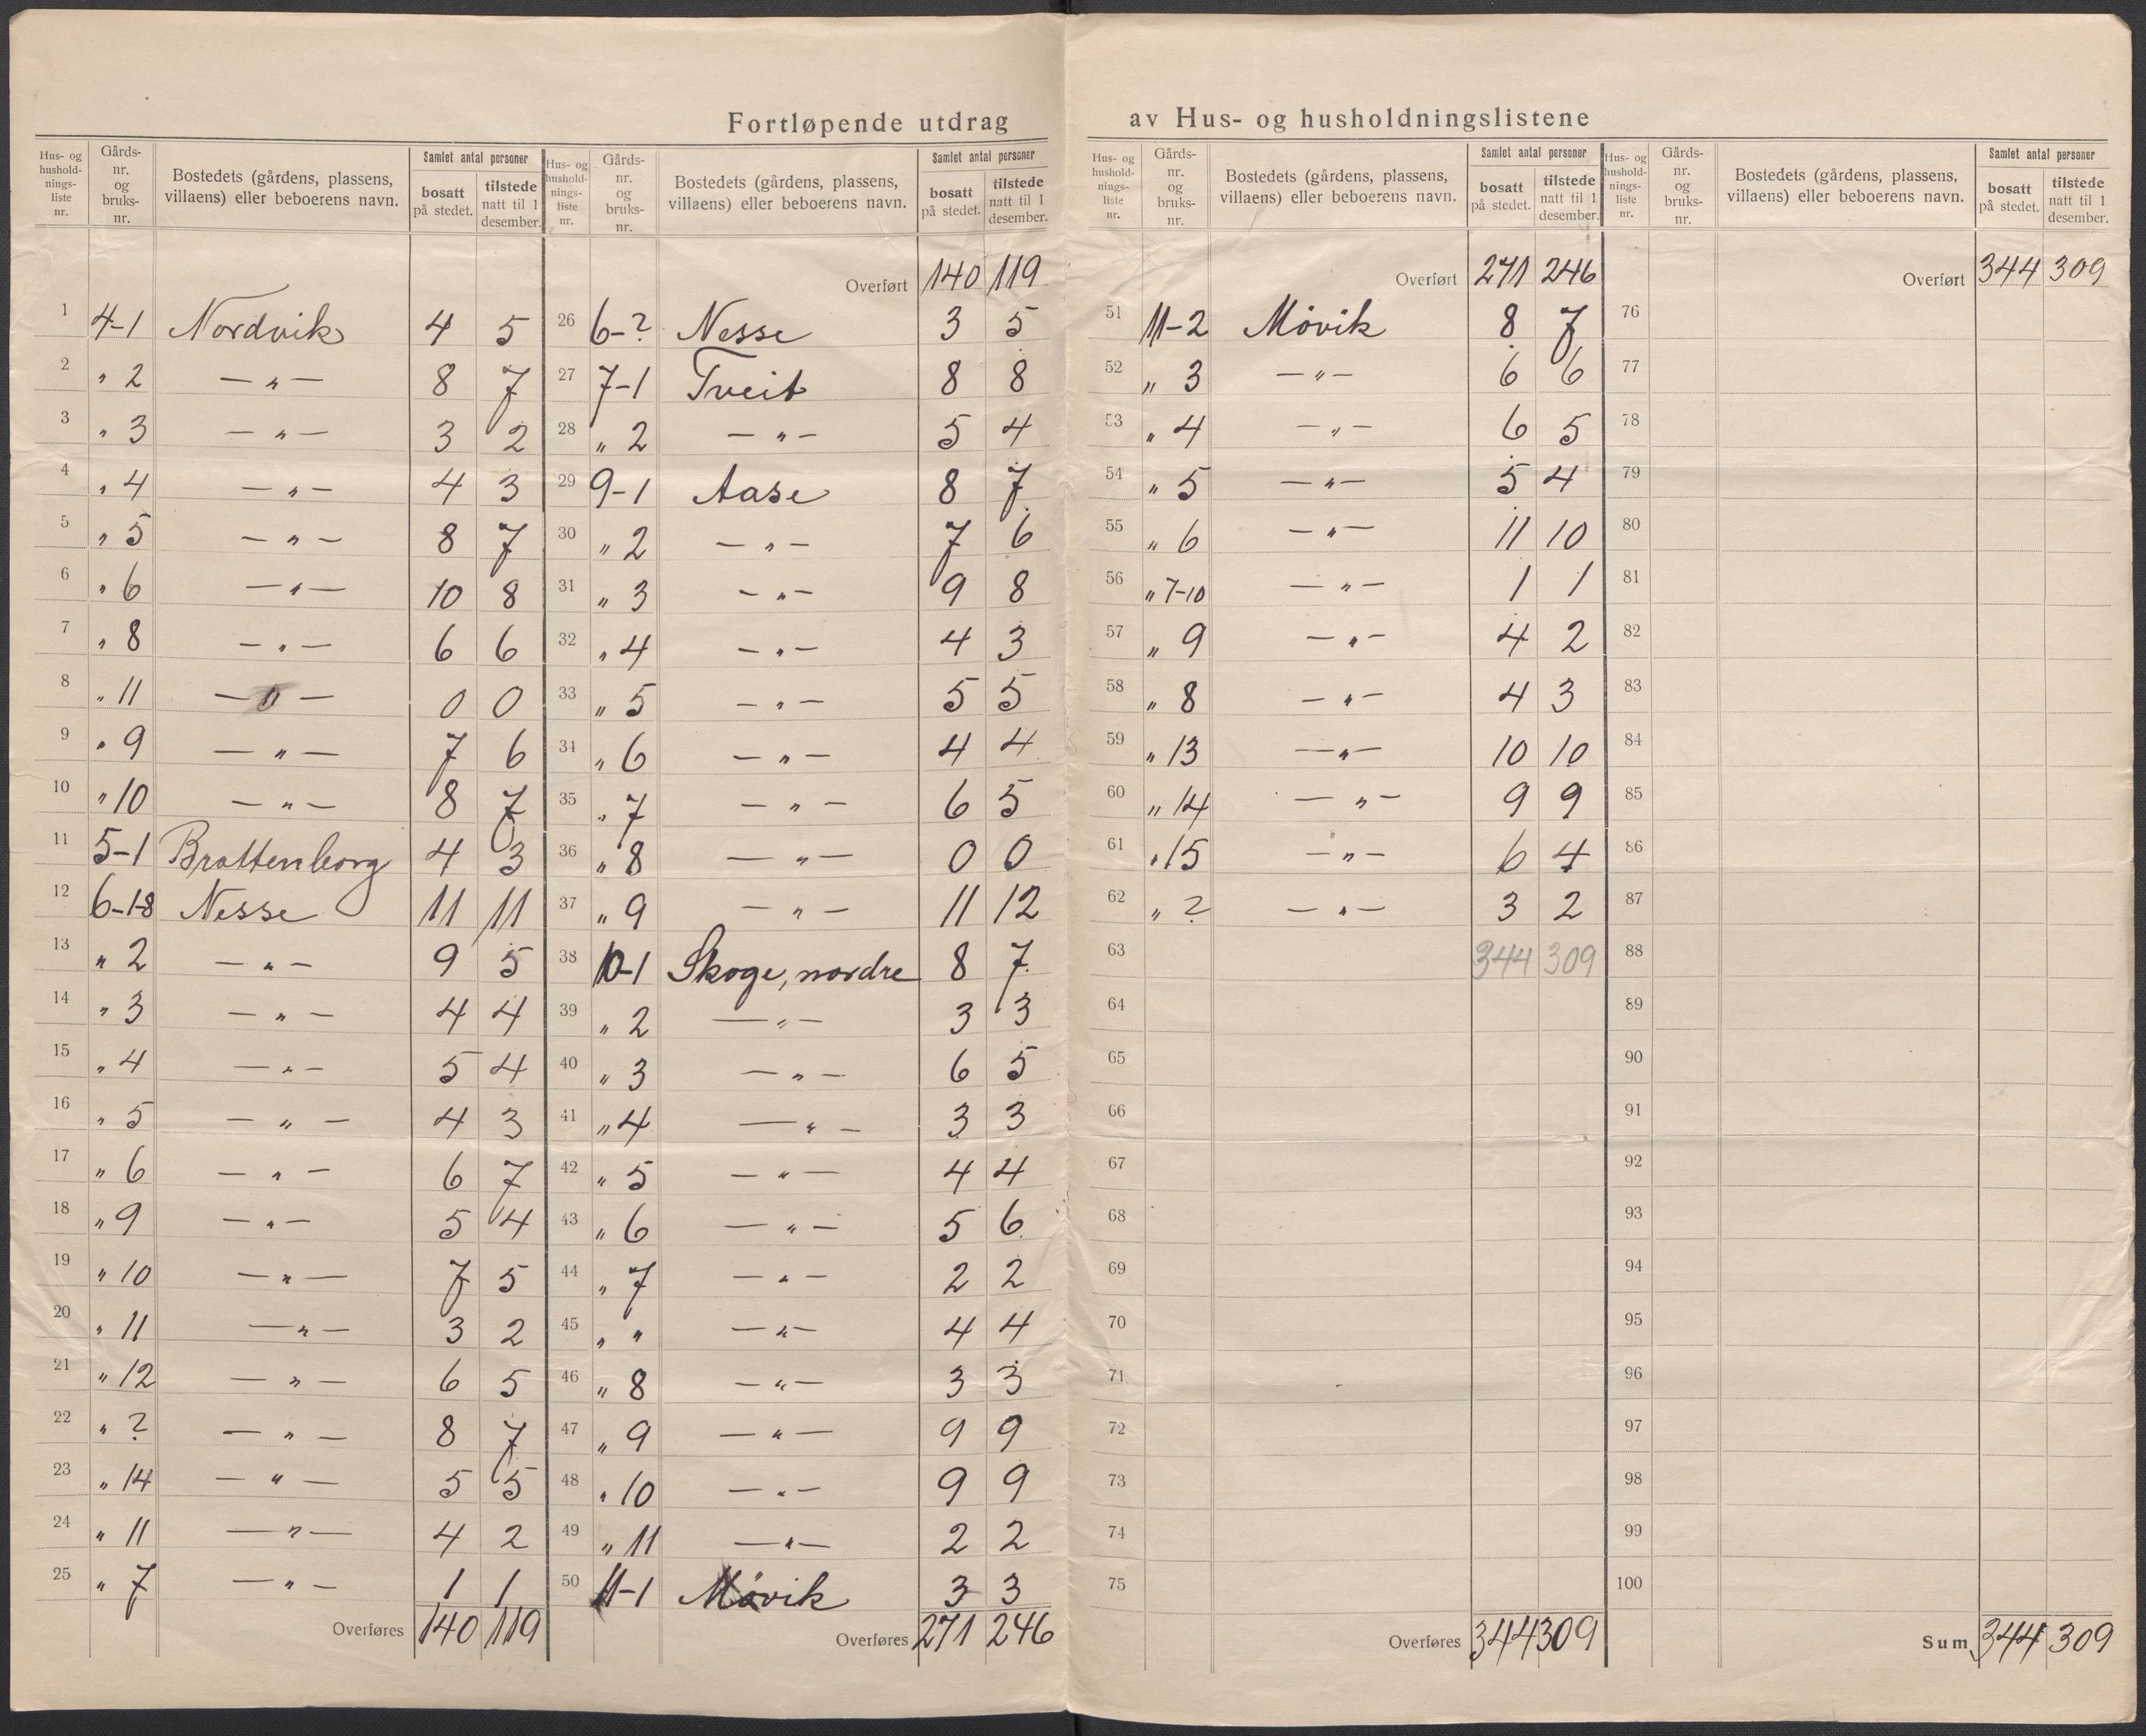 Fortløpende utdrag av Hus- og husholdningslistene
Hus- og hushold- nings- liste nr. | Gårds- nr. og bruks- nr. | Bostedets (gårdens, plassens, villaens) eller beboerens navn. | Samlet antal personer | bosatt på stedet. | tilstede natt til 1 desember.
1 4-1 Nordvik 4 5
2 " 2 — " — 8 7
3 " 3 — " — 3 2
4 " 4 — " — 4 3
5 " 5 — " — 8 7
6 " 6 — " — 10 8
7 " 8 — " — 6 6
8 " 11 — " — 0 0
9 " 9 — " — 7 6
10 " 10 — " — 8 7
11 5-1 Brattenborg 4 3
12 6-1-8 Nesse 11 11
13 " 2 — " — 9 5
14 " 3 — " — 4 4
15 " 4 — " — 5 4
16 " 5 — " — 4 3
17 " 6 — " — 6 7
18 " 9 — " — 5 4
19 " 10 — " — 7 5
20 " 11 — " — 3 2
21 " 12 — " — 6 5
22 " ? — " — 8 7
23 " 14 — " — 5 5
24 " 11 — " — 4 2
25 " 7 — " — 1 1
Overføres 140 119
Hus- og hushold- nings- liste nr. | Gårds- nr. og bruks- nr. | Bostedets (gårdens, plassens, villaens) eller beboerens navn. | Samlet antal personer | bosatt på stedet. | tilstede natt til 1 desember.
Overført 140 119
26 6-? Nesse 3 5
27 7-1 Tveit 8 8
28 " 2 — " — 5 4
29 9-1 Aase 8 7
30 " 2 — " — 7 6
31 " 3 — " — 9 8
32 " 4 — " — 4 3
33 " 5 — " — 5 5
34 " 6 — " — 4 4
35 " 7 — " — 6 5
36 " 8 — " — 0 0
37 " 9 — " — 11 12
38 10-1 Skoge, nordre 8 7
39 " 2 — " — 3 3
40 " 3 — " — 6 5
41 " 4 — " — 3 3
42 " 5 — " — 4 4
43 " 6 — " — 5 6
44 " 7 — " — 2 2
45 " " — " — 4 4
46 " 8 — " — 3 3
47 " 9 — " — 9 9
48 " 10 — " — 9 9
49 " 11 — " — 2 2
50 11-1 Møvik 3 3
Overføres 271 246
Hus- og hushold- nings- liste nr. | Gårds- nr. og bruks- nr. | Bostedets (gårdens, plassens, villaens) eller beboerens navn. | Samlet antal personer | bosatt på stedet. | tilstede natt til 1 desember.
Overført 271 246
51 11-2 Møvik 8 7
52 " 3 — " — 6 6
53 " 4 — " — 6 5
54 " 5 — " — 5 4
55 " 6 — " — 11 10
56 " 7-10 — " — 1 1
57 " 9 — " — 4 2
58 " 8 — " — 4 3
59 " 13 — " — 10 10
60 " 14 — " — 9 9
61 " 15 — " — 6 4
62 " ? — " — 3 2
63 344 309
64
65
66
67
68
69
70
71
72
73
74
75
Overføres 344 309
Hus- og hushold- nings- liste nr. | Gårds- nr. og bruks- nr. | Bostedets (gårdens, plassens, villaens) eller beboerens navn. | Samlet antal personer | bosatt på stedet. | tilstede natt til 1 desember.
Overført 344 309
76
77
78
79
80
81
82
83
84
85
86
87
88
89
90
91
92
93
94
95
96
97
98
99
100
Sum 344 309